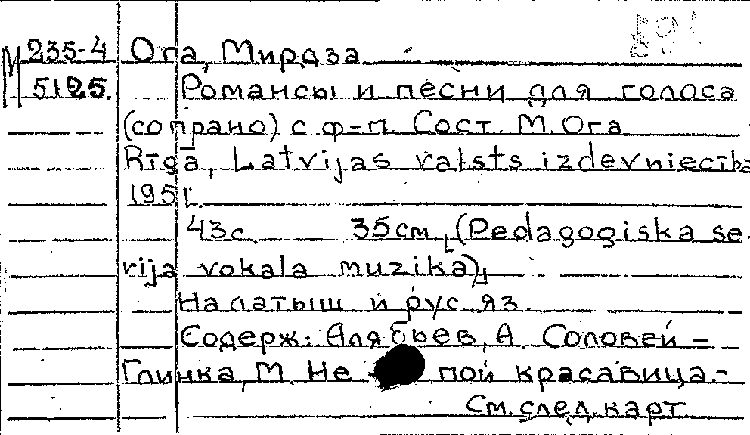 М 235-4 Ога, Мирдза
5125. Романсы и песни для голоса
(сопрано) с ф-п. Сост. М. Ога
Rīgā, Latvijas valsts izdevniecība
1951.
43с. 35см. (Pedagogiska se-
rija vokala muzika)
На латыш и рус яз.
Содерж: Алябьев, А. Соловей -
Глинка, М. Не пой красавица.-
См. след. карт